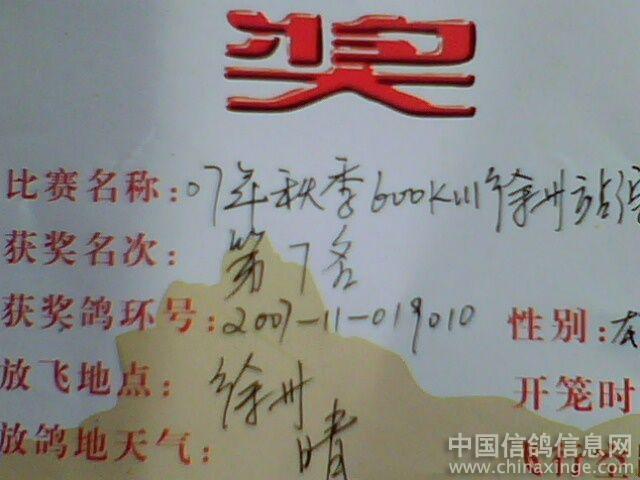 奖
比赛名称:07年秋季600KM徐州站综
获奖名次:第7名
获奖鸽环号:2007-11-019010 性别:
放飞地点:徐州 开笼时
放鸽地天气:晴
中国信鸽信息网
www.chinaxinge.com